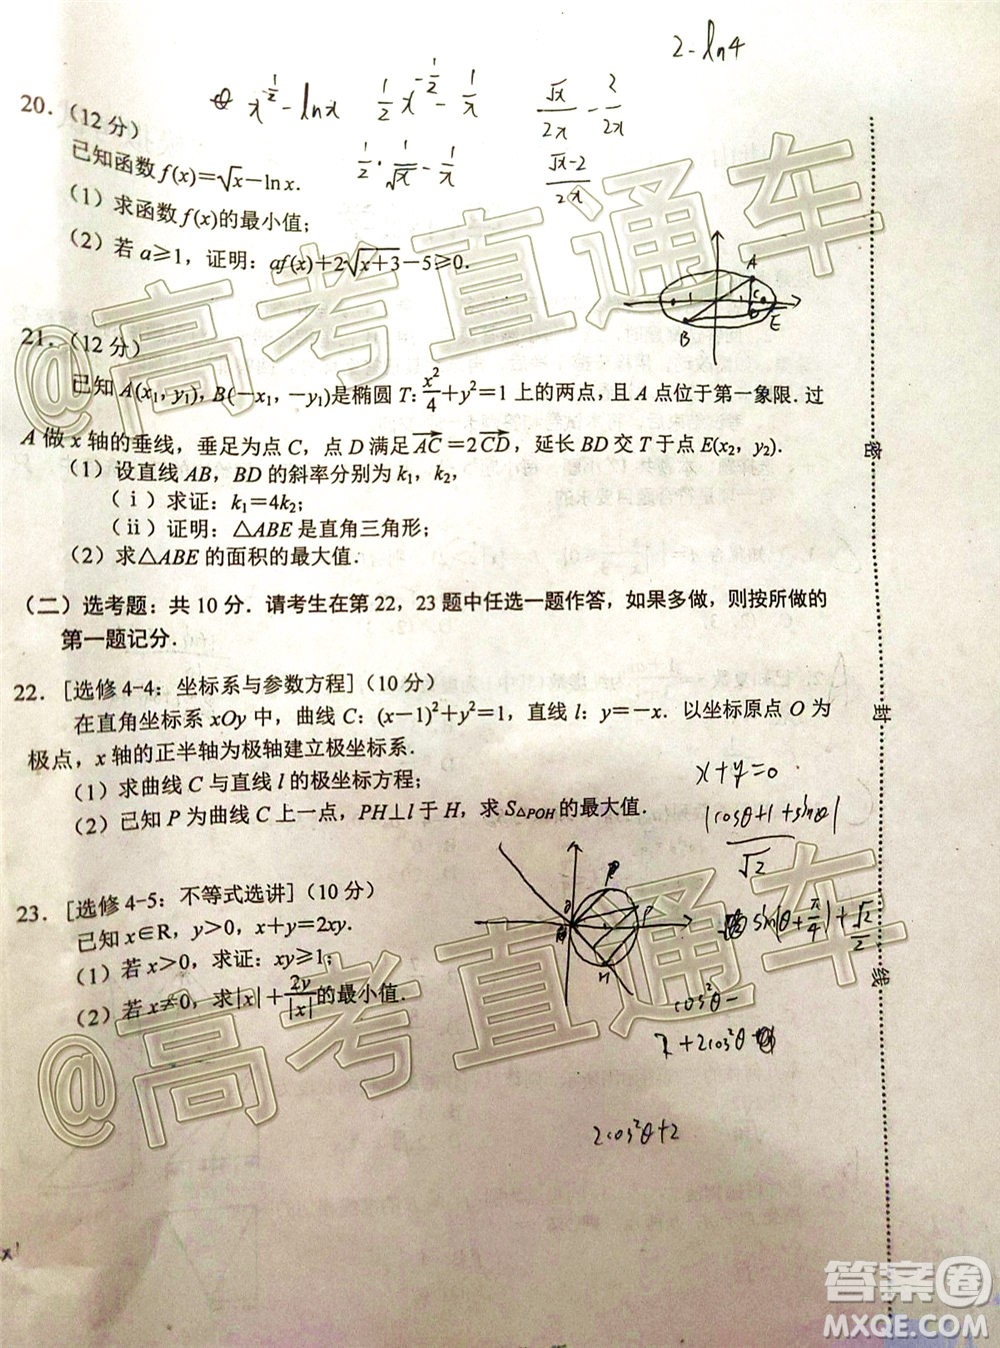 2-ln4
x^{-1/2}-lnx  1/2 x^{-1/2}-1/x  √x/2x-2/2x
20．(12分)
已知函数f(x)=√x-lnx.
1/2·1/√x-1/x  √x-2/2x
(1) 求函数f(x)的最小值;
(2) 若a≥1，证明：af(x)+2√(x+3)-5≥0.
A
C
D
B
E
21．(12分)
已知A(x₁, y₁), B(-x₁, -y₁)是椭圆T: x²/4+y²=1上的两点，且A点位于第一象限. 过
A做x轴的垂线，垂足为点C，点D满足AC=2CD，延长BD交T于点E(x₂, y₂).
(1) 设直线AB，BD的斜率分别为k₁，k₂，
(ⅰ) 求证：k₁=4k₂;
(ⅱ) 证明：△ABE是直角三角形;
(2) 求△ABE的面积的最大值.
(二) 选考题：共10分. 请考生在第22，23题中任选一题作答，如果多做，则按所做的
第一题记分.
22．[选修4-4：坐标系与参数方程] (10分)
在直角坐标系xOy中，曲线C: (x-1)²+y²=1，直线l: y=-x. 以坐标原点O为
极点，x轴的正半轴为极轴建立极坐标系.
(1) 求曲线C与直线l的极坐标方程;
(2) 已知P为曲线C上一点，PH⊥l于H，求S△POH的最大值.
x+y=0
|cosθ+1+sinθ|/√2
P
H
23．[选修4-5：不等式选讲] (10分)
已知x∈R，y>0，x+y=2xy.
(1) 若x>0，求证：xy≥1;
(2) 若x≠0，求|x|+2y/|x|的最小值.
sin(θ+π/4)+√2/2
cos²θ-
2cos²θ+2
密
封
线
@高考直通车
@高考直通车
答案圈
MXQE.COM